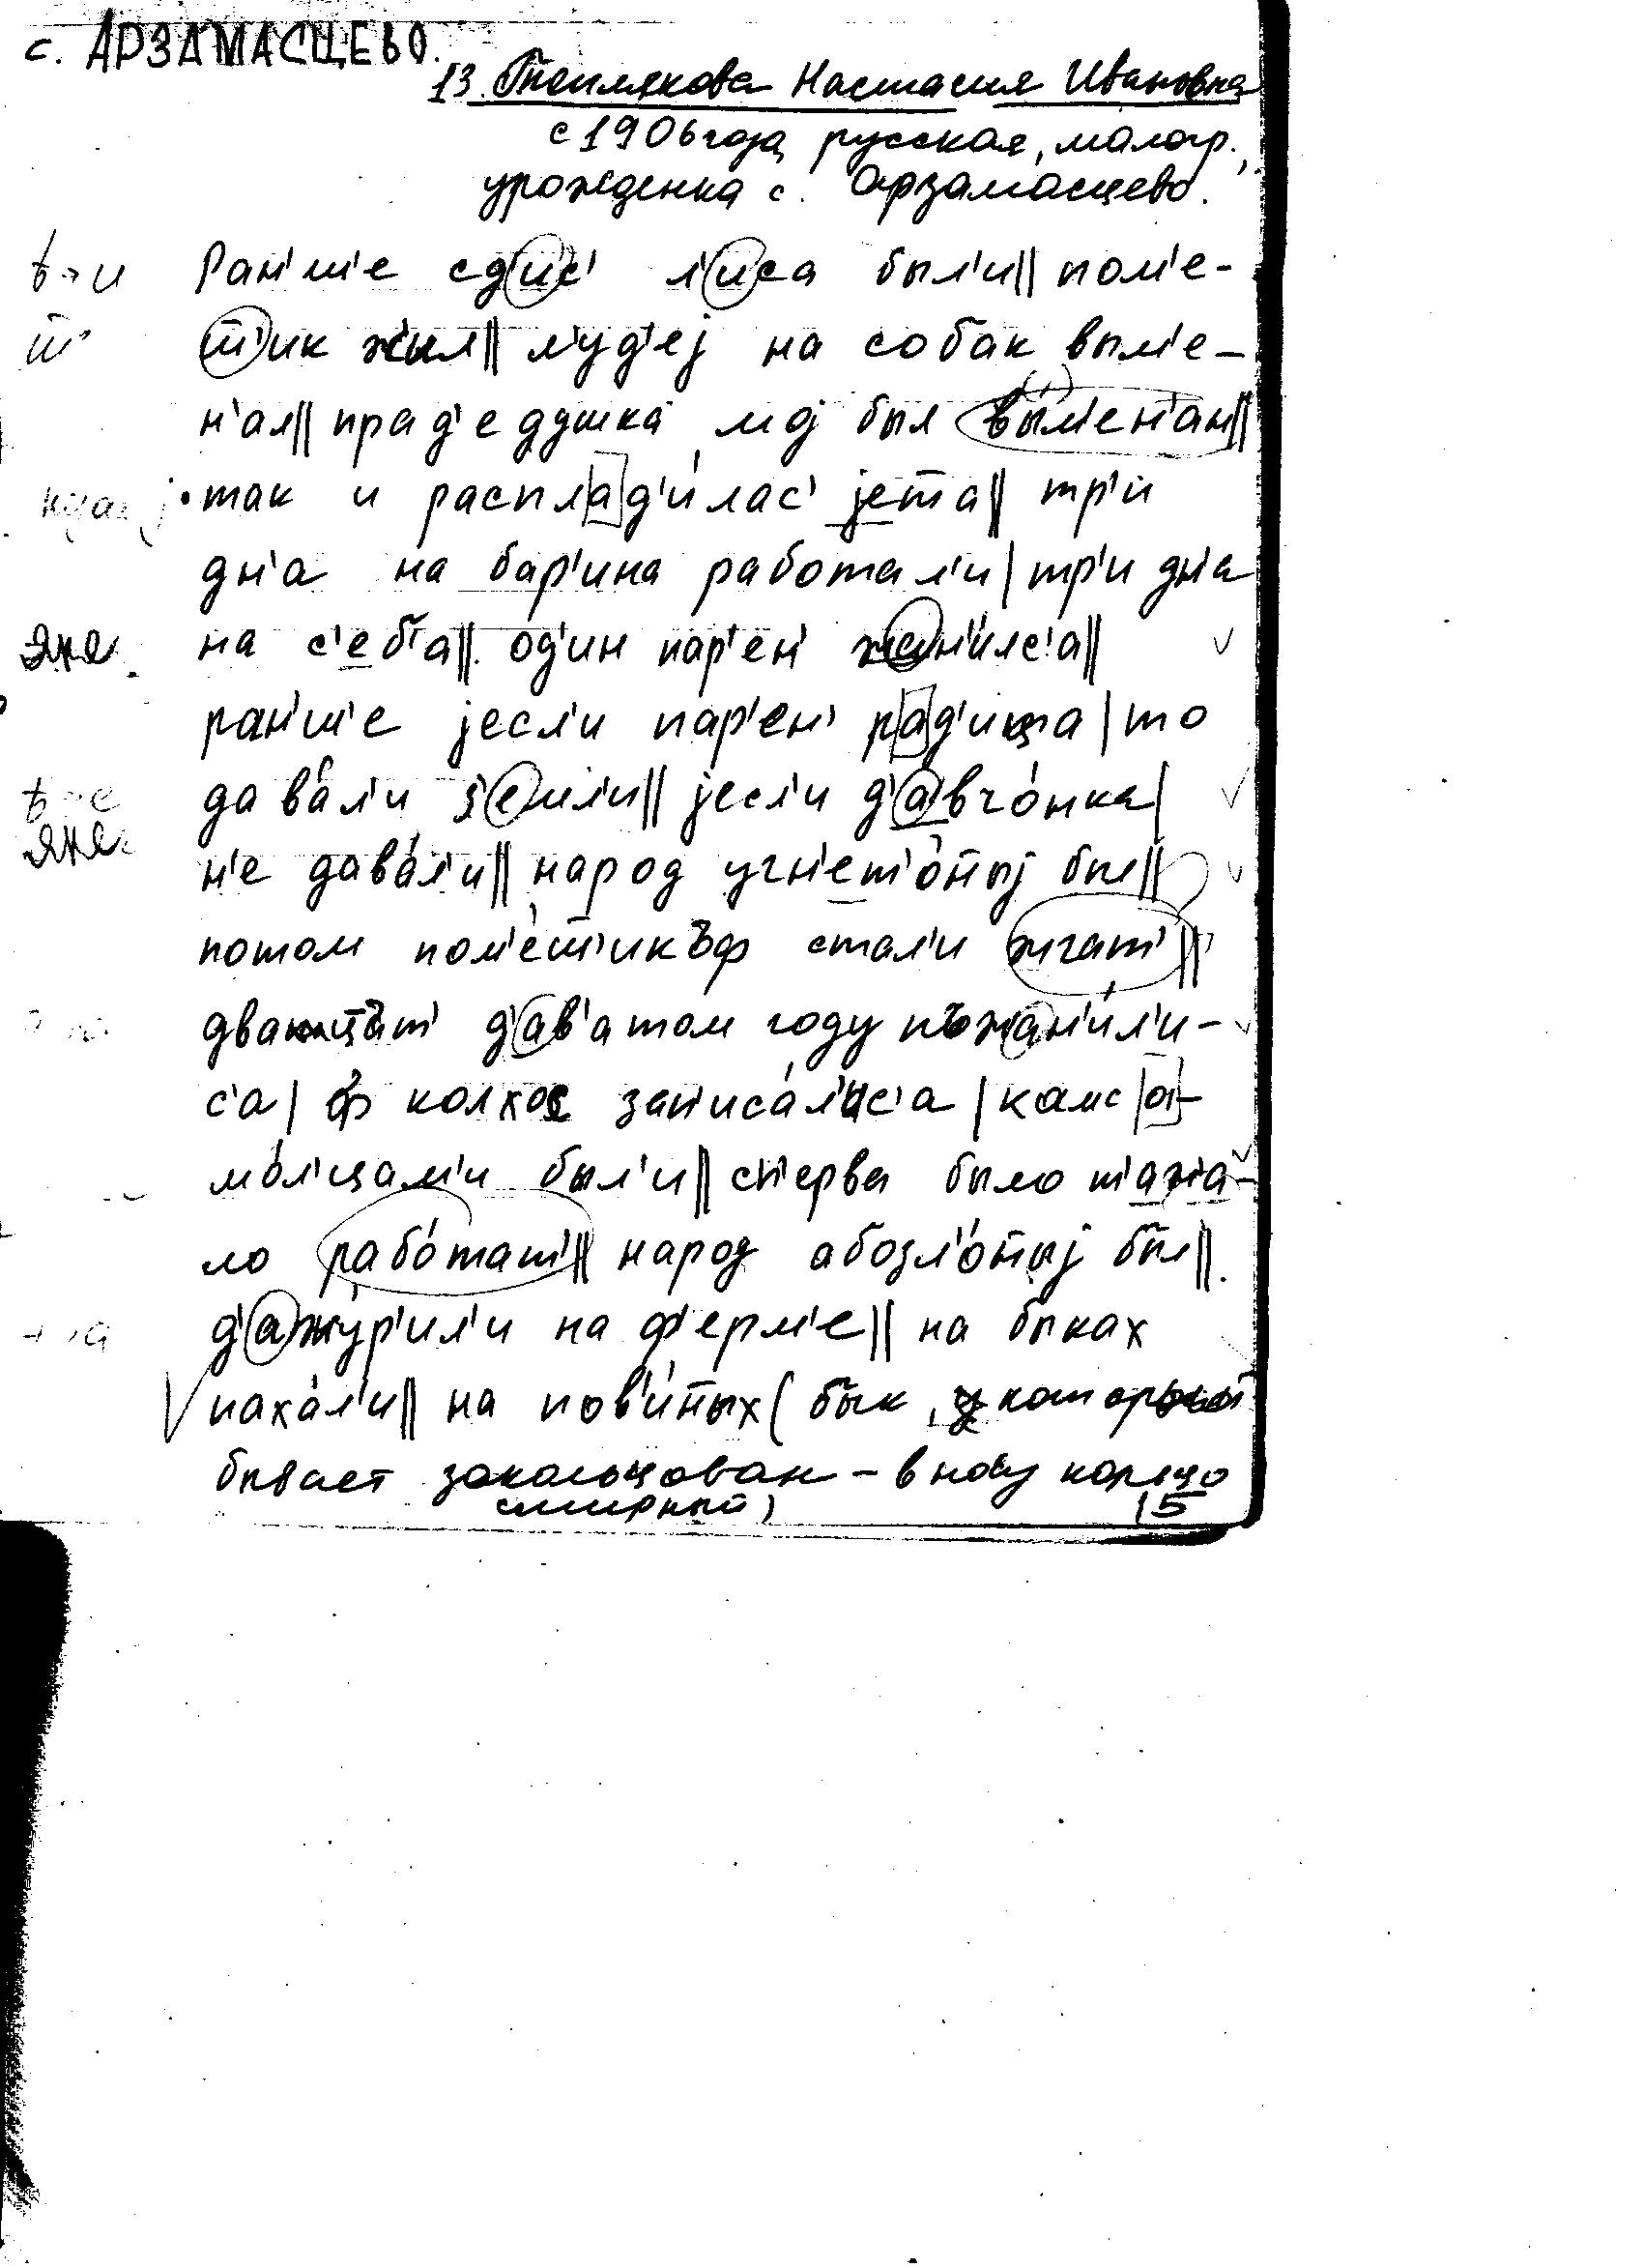 с. АРЗАМАСЦЕВО.
13. Теплякова Настасия Ивановна
с 1906 года, русская, малогр.,
урожденка с. Арзамасцево.
ѣ→и Ран'ш'е сд'ис' л'иса был'и || пом'е-
ш̅' ш̅'ик жыл || л'уд'еј на собак вым'е-
н'ал || прад'едушка мој был вы́м'ен'ан ||
так и распл[а]д'и́лас' јета || тр'и
дн'а на бар'ина работал'и | тр'и дн'а
на с'еб'а || од'ин пар'ен' жан'и́лс'а ||
ран'ш'е јесл'и пар'ен' р[а]д'ица | то
ѣ→е дава́л'и з'емл'и || јесл'и д'авчо́нка |
н'е дава́л'и || народ угн'ет'о́н̅ыј был ||
потом пом'е́ш̅'икъф стал'и жгат' ||
двац̅ът' д'ав'атом году пъжан'и́л'и-
с'а | ф колхос зап'иса́л'ис'а | камс[а]-
мо́л'цам'и был'и || сп'ерва было т'ажа-
ло рабо́тат' || народ абозл'о́н̅ыј был ||
д'ажу́р'ил'и на ф'ерм'е || на быках
паха́л'и || на пов'и́н̅ых (бык, который
бывает закольцован – в носу кольцо
смирный)
15